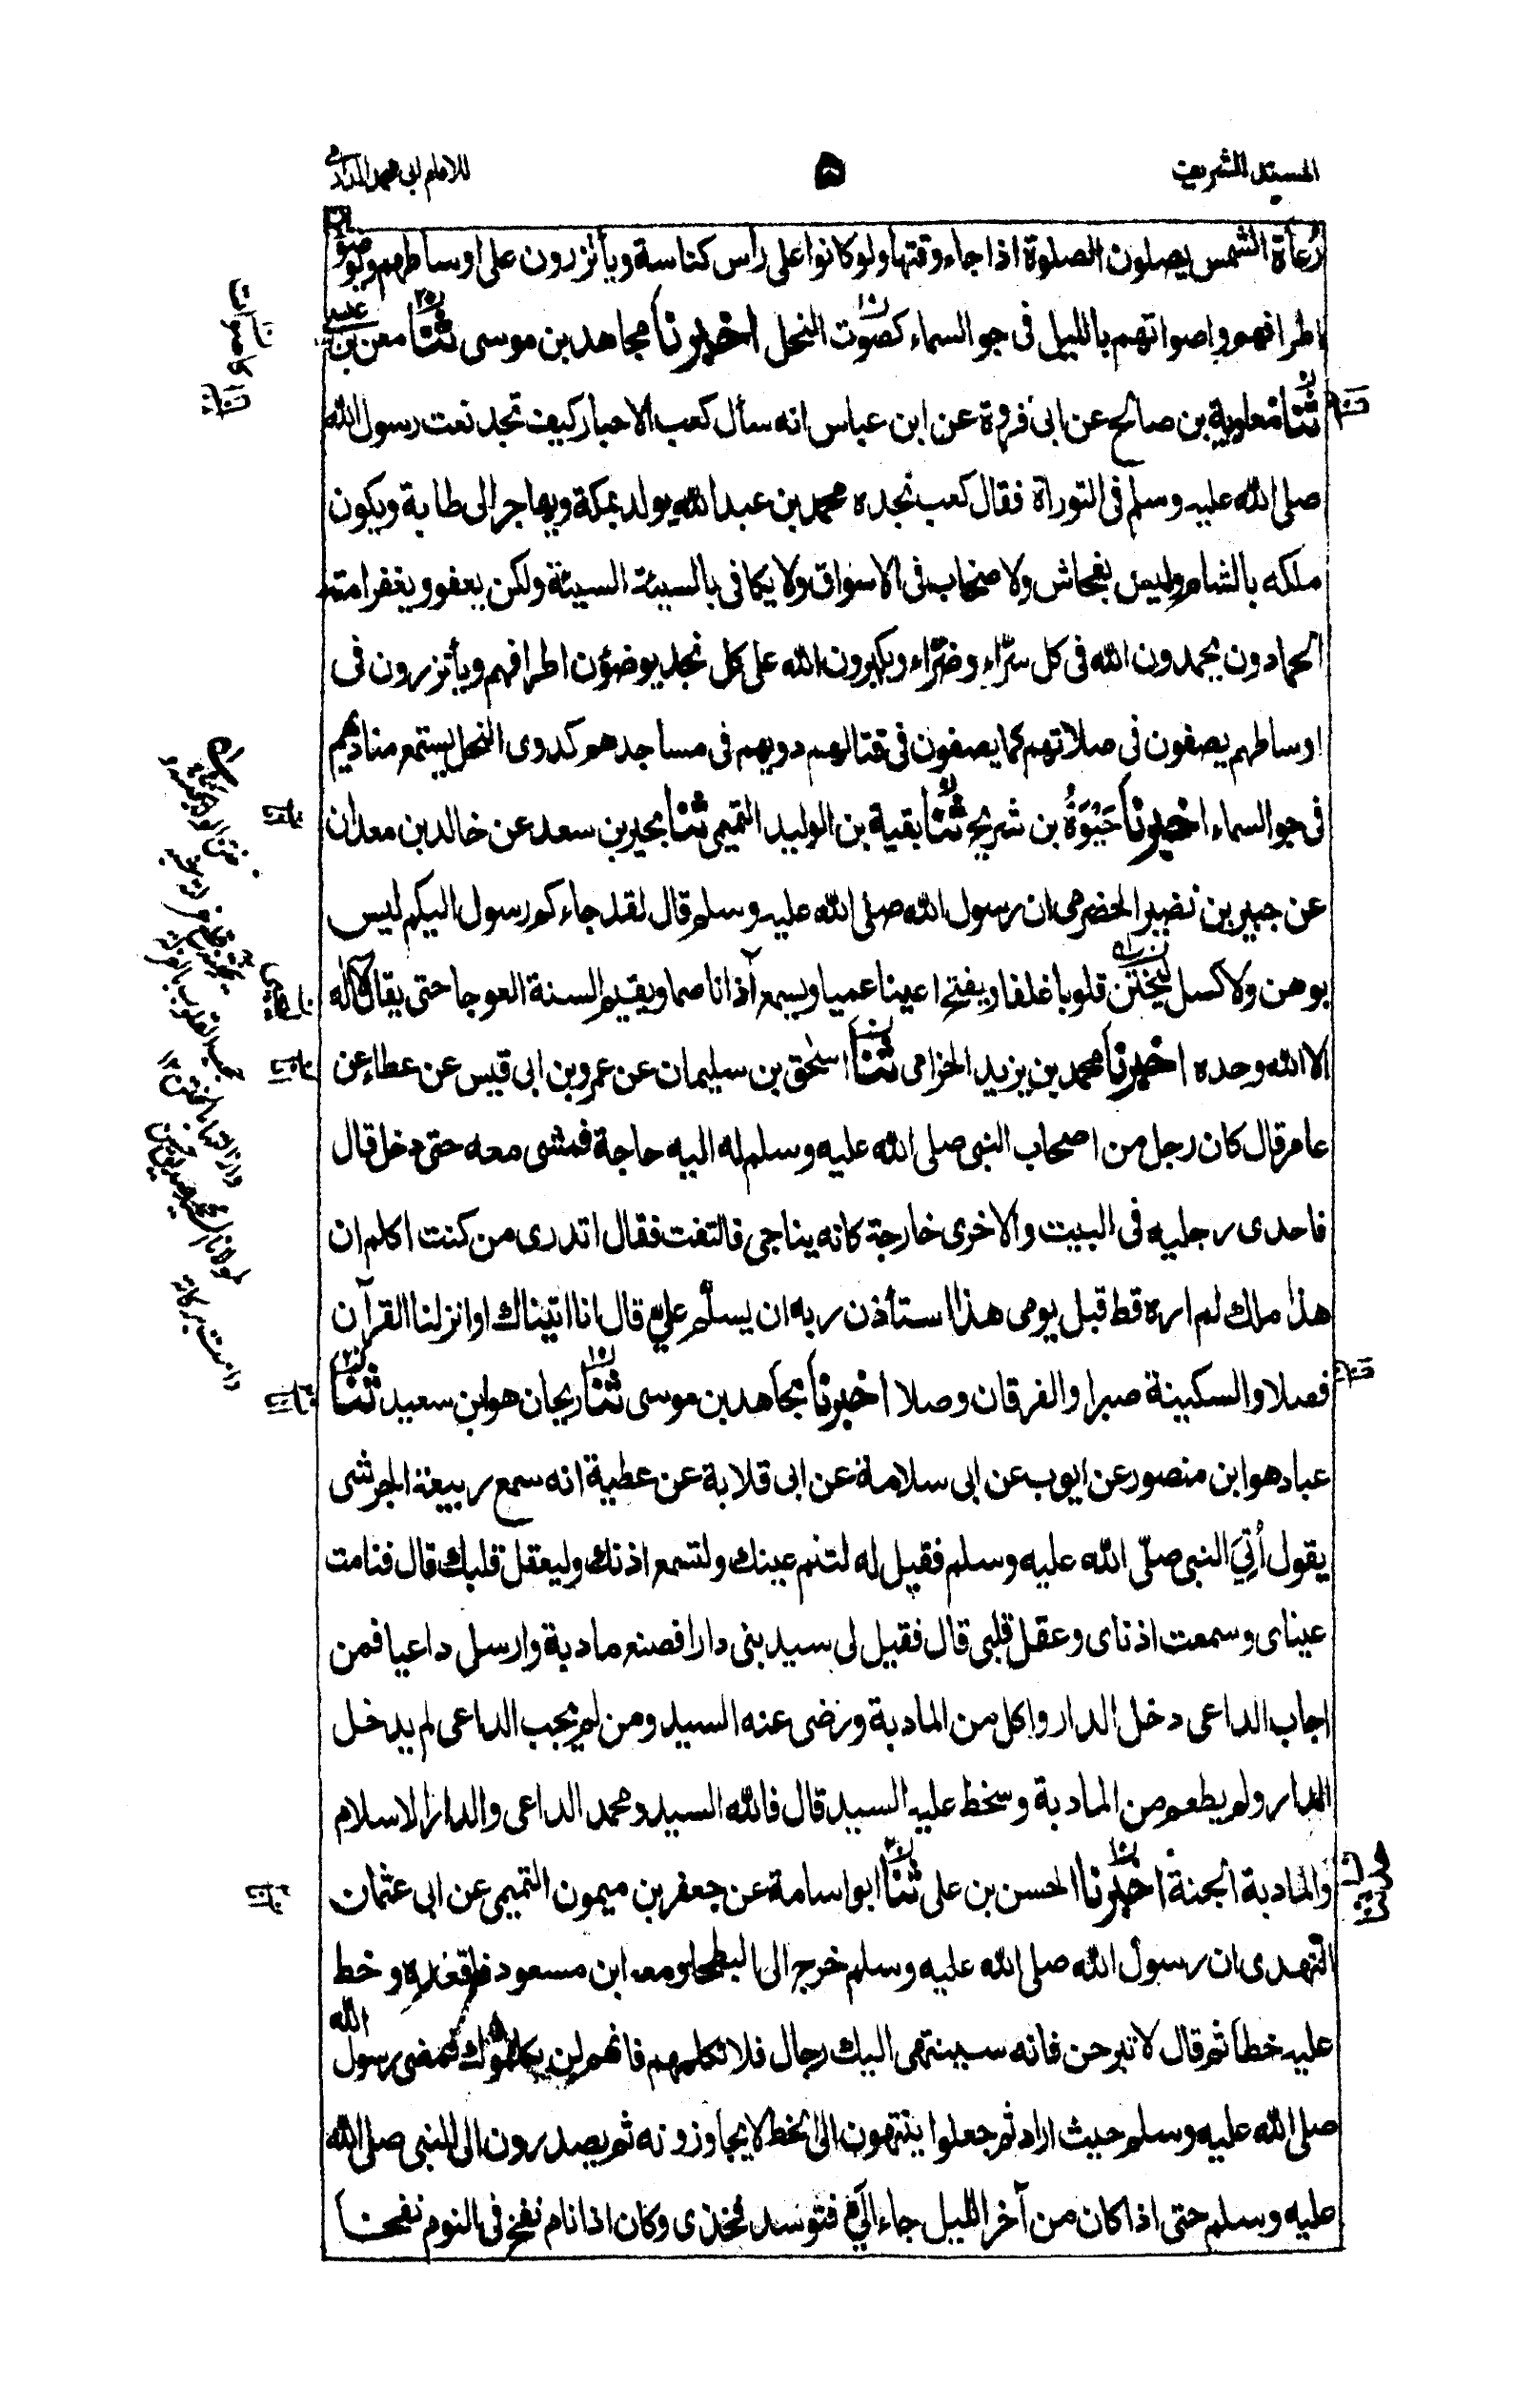 المسند الشريف
٥
للامام ابى محمد الدارمى
رُعاة الشمس يصلون الصلوة اذا جاء وقتها ولو كانوا على رأس كناسة ويأتزرون على اوساطهم ويوضؤن
اطرافهم واصواتهم بالليل فى جو السماء كصوت النحل اخبرنا مجاهد بن موسى ثنا معن بن عيسى
ثنا معاوية بن صالح عن ابى فروة عن ابن عباس انه سأل كعب الاحبار كيف تجد نعت رسول الله
صلى الله عليه وسلم فى التوراة فقال كعب نجده محمد بن عبد الله يولد بمكة ويهاجر الى طابة ويكون
ملكه بالشام وليس بفحاش ولا صخاب فى الاسواق ولا يكافى بالسيئة السيئة ولكن يعفو ويغفر امته
الحمادون يحمدون الله فى كل سرّاء وضرّاء ويكبرون الله على كل نجد يوضؤن اطرافهم ويأتزرون فى
اوساطهم يصفون فى صلاتهم كما يصفون فى قتالهم دويهم فى مساجدهم كدوى النحل يستمع مناديهم
فى جو السماء اخبرنا حَيْوَةُ بن شريح ثنا بقية بن الوليد التميمى ثنا بحير بن سعد عن خالد بن معدان
عن جبير بن نضير الحضرمى ان رسول الله صلى الله عليه وسلم قال لقد جاءكم رسول اليكم ليس
بوهن ولا كسل ليختن قلوبا غلفا ويفتح اعينا عميا ويسمع آذانا صما ويقيم السنة العوجا حتى يقال لا اله
الا الله وحده اخبرنا محمد بن يزيد الحزامى ثنا اسحق بن سليمان عن عمرو بن ابى قيس عن عطاء عن
عامر قال كان رجل من اصحاب النبى صلى الله عليه وسلم له اليه حاجة فمشى معه حتى دخل قال
فاحدى رجليه فى البيت والاخرى خارجة كانه يناجى فالتفت فقال اتدرى من كنت اكلم ان
هذا ملك لم اره قط قبل يومى هذا استأذن ربه ان يسلّم علىّ قال انا اتيناك او انزلنا القرآن
فصلا والسكينة صبرا والفرقان وصلا اخبرنا مجاهد بن موسى ثنا ريحان هو ابن سعيد ثنا
عباد هو ابن منصور عن ايوب عن ابى سلامة عن ابى قلابة عن عطية انه سمع ربيعة الجرشى
يقول أُتِيَ النبى صلّى الله عليه وسلم فقيل له لتنم عينك ولتسمع اذنك وليعقل قلبك قال فنامت
عيناى وسمعت اذناى وعقل قلبى قال فقيل لى سيد بنى دارا فصنع مادبة وارسل داعيا فمن
اجاب الداعى دخل الدار واكل من المادبة ورضى عنه السيد ومن لم يجب الداعى لم يدخل
الدار ولم يطعم من المادبة وسخط عليه السيد قال فالله السيد ومحمد الداعى والدار الاسلام
والمادبة الجنة اخبرنا الحسن بن على ثنا ابو اسامة عن جعفر بن ميمون التميمى عن ابى عثمان
النهدى ان رسول الله صلى الله عليه وسلم خرج الى البطحاء ومعه ابن مسعود فاقعده وخط
عليه خطا ثم قال لا تبرحن فانه سينتهى اليك رجال فلا تكلمهم فانهم لن يكلموك فمضى رسول الله
صلى الله عليه وسلم حيث اراد ثم جعلوا ينتهون الى الخط لا يجاوزونه ثم يصدرون الى النبى صلى الله
عليه وسلم حتى اذا كان من آخر الليل جاء الىّ فتوسد فخذى وكان اذا نام نفخ فى النوم نفخا